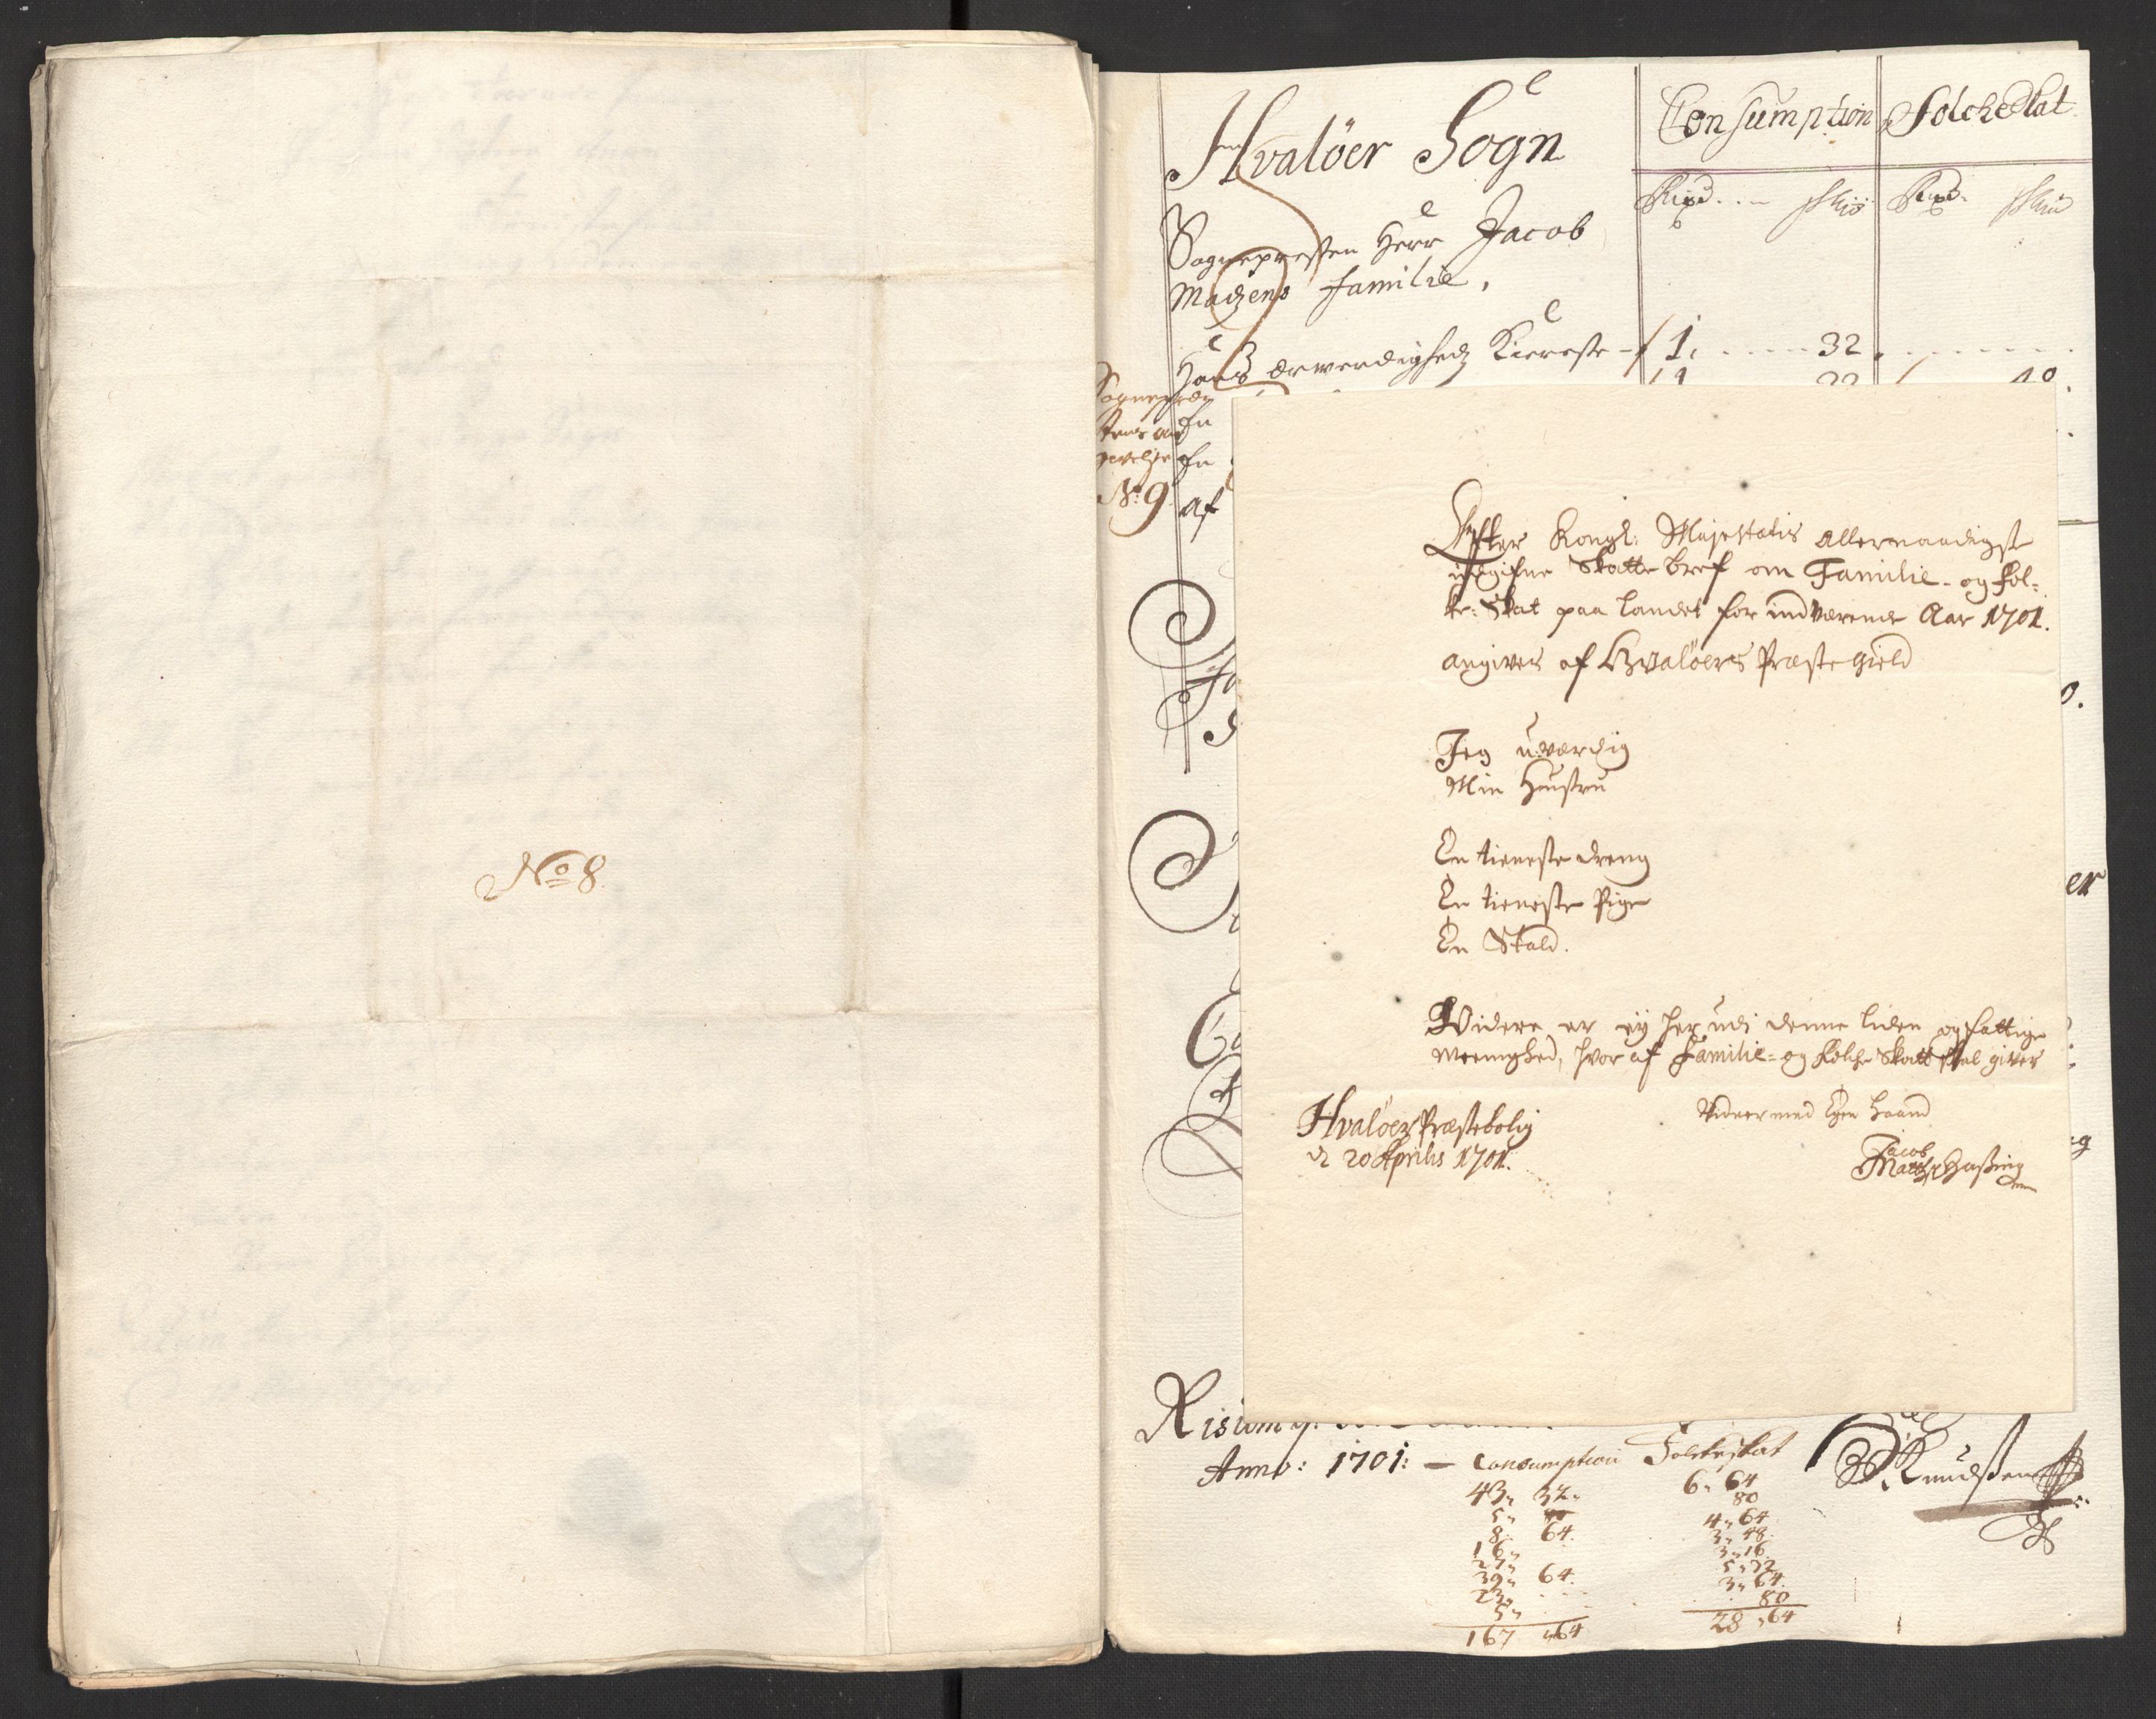 No 8.
Hvalöer Sogn
Consumption
Folche Skat
Rixd. Skis
Rixd. Skis
Sognepresten Herr Jacob
Madzens Familie,
Hans ærwerdigheds Kiereste - 1. 32
Sognepræs
tens an
givelse
No: 9
En
En
af
Effter Kongl: Majestatis allernaadigst
udgifne Skatte bref om Familie- og Fol-
ke-Skat paa Landet for indværende Aar 1701.
angives af Hvalöers Præstegield
Jeg uværdig
Min Hustru
En tieneste dreng
En tieneste Pige
En Stald.
Videre er ey her udi denne liden og fattige
meenighed, hvor af Familie- og Folche Skatt skal gives
Hvalöers Præstebolig
d 20 Aprilis 1701.
Vidner med Egen haand
Jacob
er
Anno: 1701: - Consumption Folkeskat
43„ 32„ 6„ 64
5„ 80
8„ 64. 4„ 64
16„ 3„ 48.
27„ 3„ 16.
39„ 64. 5„ 32
23„ 3„ 64.
5„ 80
167 „64 28 „64
Knudssen